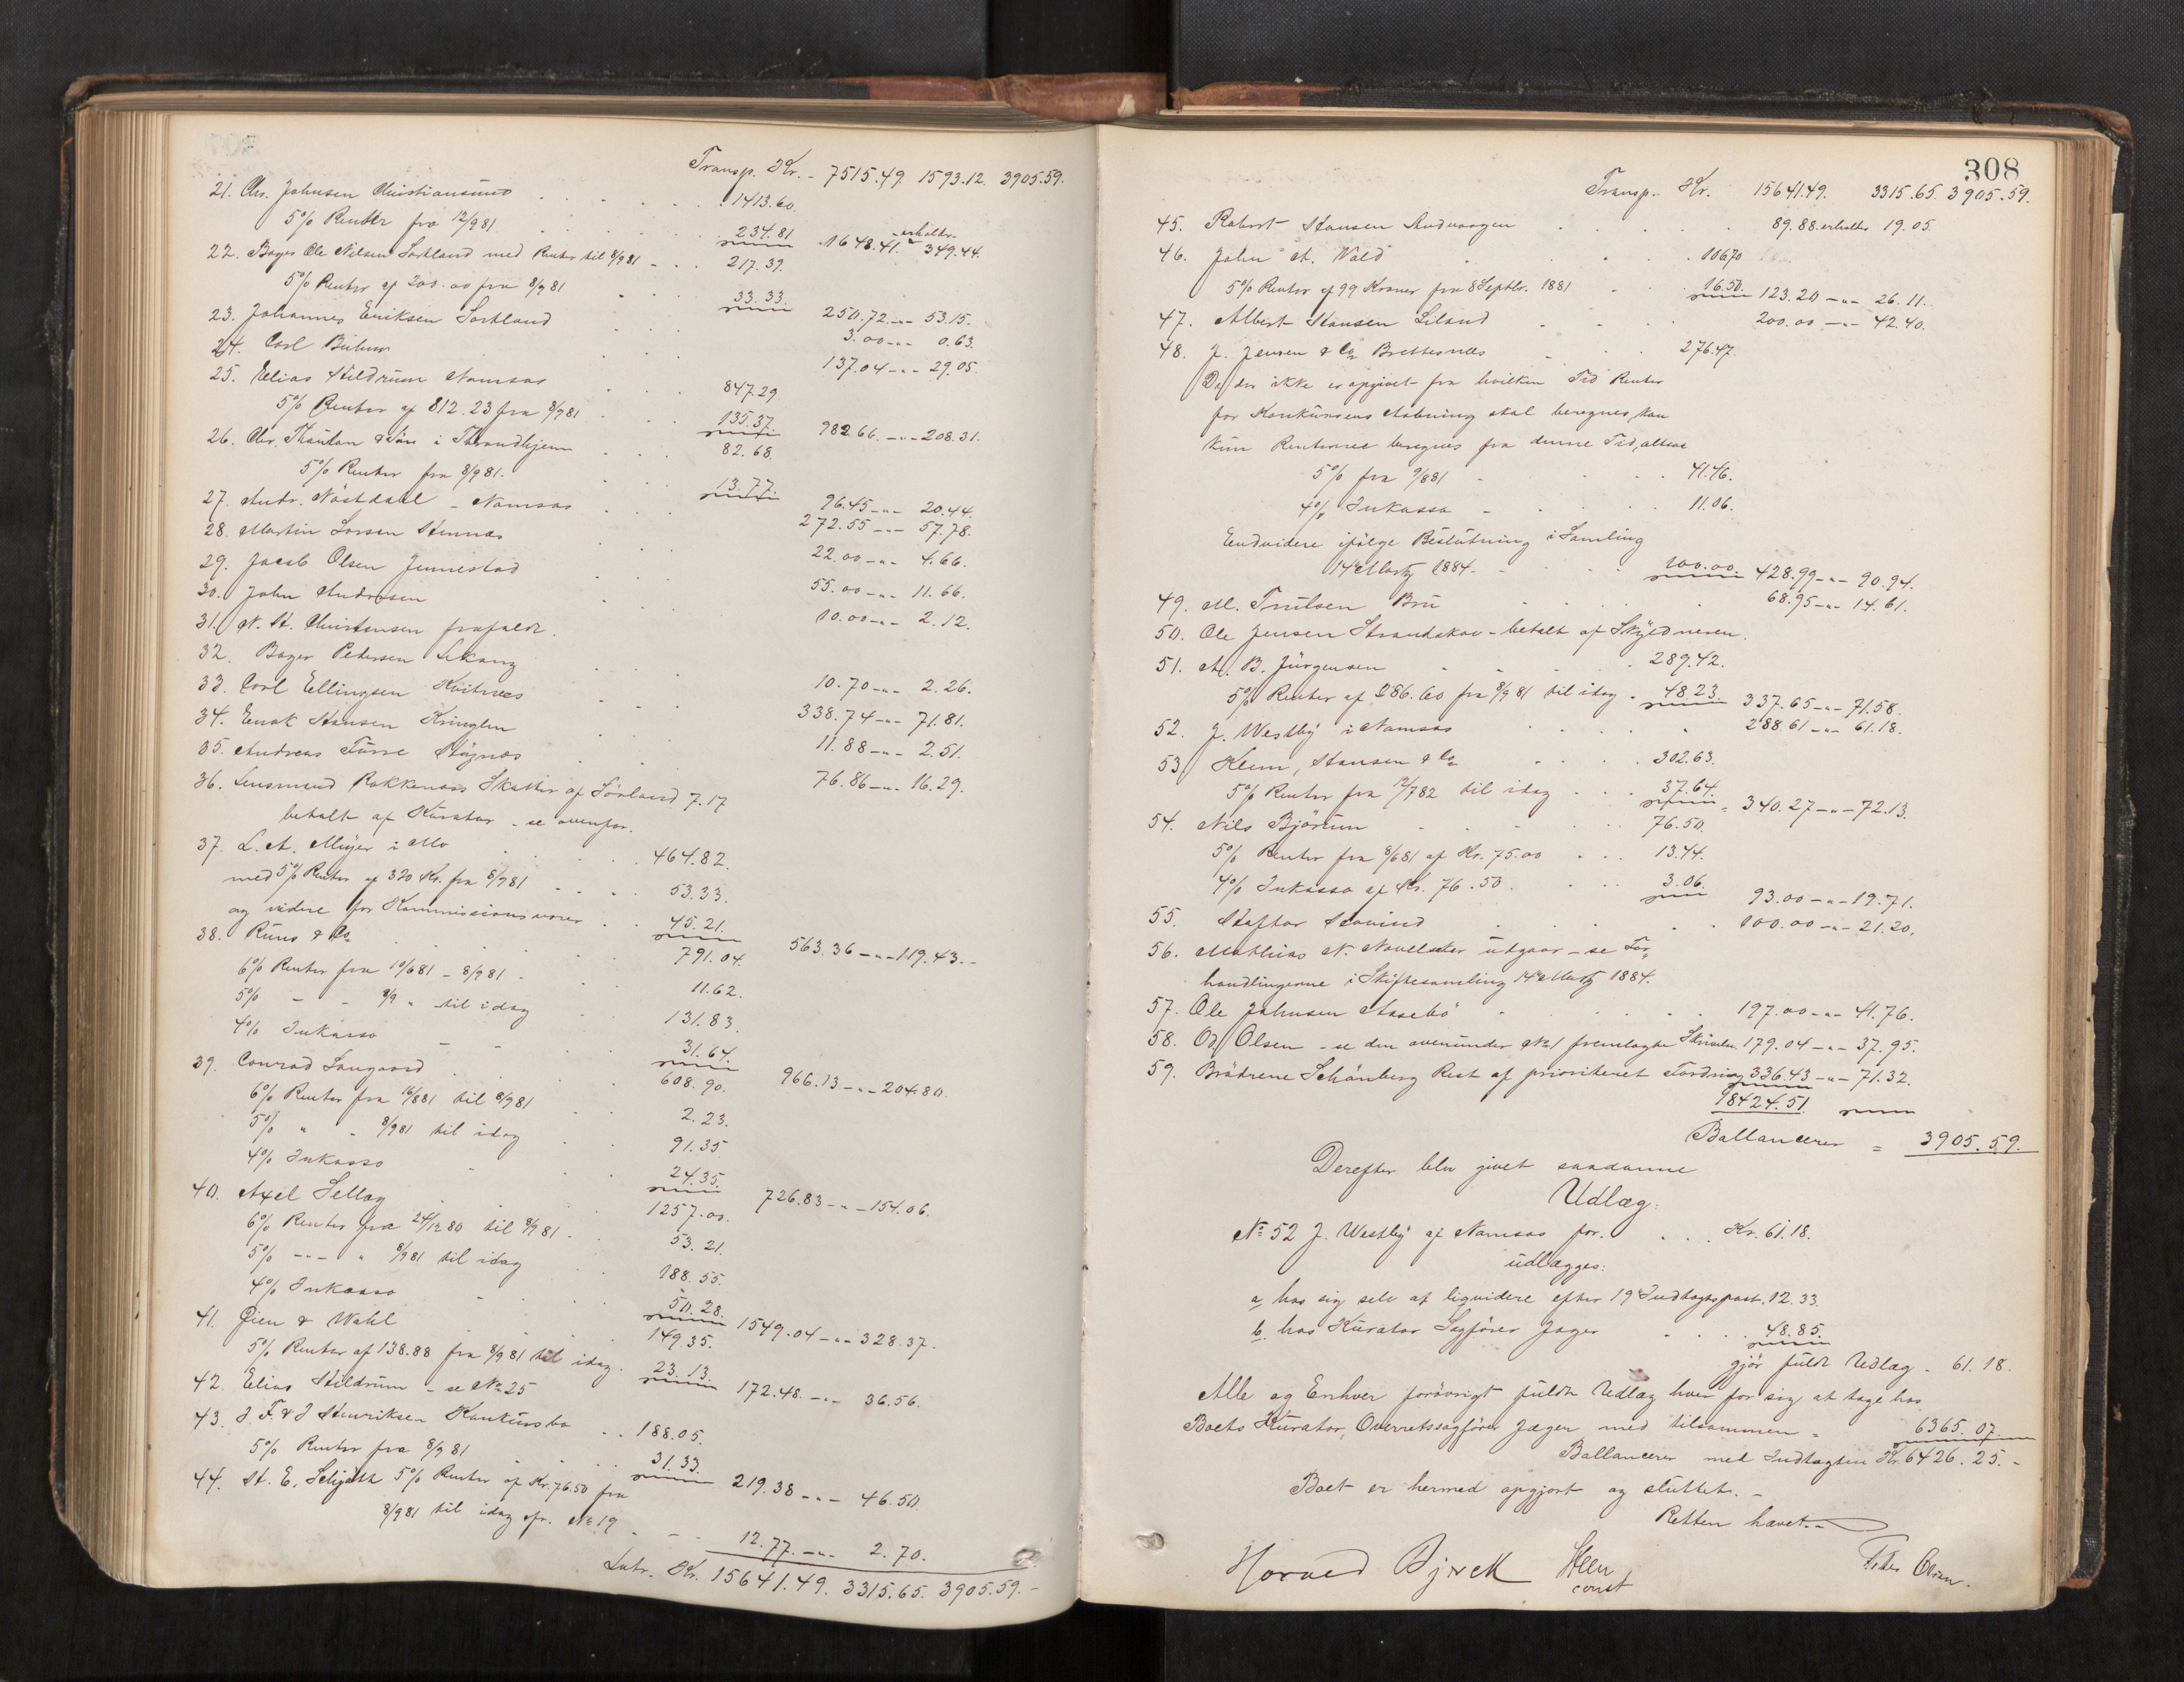 Transp. Kr. - 7515.49. 1593.12. 3905.59.
21. Chr. Johnsen Christianssund . . . . . 1413.60.
5% Renter fra 12/9 81 . . . . . 234.81 1648.41. erholder 349.44.
22. Bager Ole Nilsen Sortland med Renter til 8/9 81 - . . 217.39.
5% Renter af 200.00 fra 8/9 81 . . 33.33. 250.72 -"- 53.15.
23. Johannes Eriksen Sortland . . . 3.00 -"- 0.63.
24. Carl . . . 137.04 -"- 29.05.
25. Elias Hildrum Namsos . . 847.29.
5% Renter af 812.23 fra 8/9 81 . . . 135.37. 982.66. -"- 208.31.
26. Chr. Thaulow & Søn i Throndhjem . . . 82.68.
5% Renter fra 8/9 81. 13.77. 96.45 -"- 20.44.
27. Andr. Nöstdahl - Namsos . . . 272.55 -"- 57.78.
28. Martin Larsen Stennes . . . 22.00 -"- 4.66.
29. Jacob Olsen Jennestad . . . 55.00 -"- 11.66.
30. John Andresen . . . 10.00 -"- 2.12.
31. N. H. Christensen frafaldt.
32. Bager Petersen . . . 10.70 -"- 2.26.
33. Carl Ellingsen Hvitnes . . . 338.74 -"- 71.81.
34. Enok Hansen Kringlen . . . 11.88 -"- 2.51.
35. Andreas . . . 76.86 -"- 16.29.
36. Lensmand Rokkenæs Skatter af Sörland 7.17
betalt af Kurator - se ovenfor.
37. L. A. Meyer i Mo . . . . . 464.82.
med 5% Renter af 320 Kr. fra 8/9 81 . . . . 53.33.
og videre for Kommissionsvarer . . 45.21. 563.36 -"- 119.43. -
38. Ruus & Co. . . . 791.04.
6% Renter fra 10/6 81 - 8/9 81 - . . 11.62.
5% - - 8/9 " til idag . . 131.83.
4% Inkasso - - . . 31.64. 966.13 -"- 204.80.
39. Conrad Langaard . . . . 608.90.
6% Renter fra 16/8 81 til 8/9 81 . . 2.23.
5% " - 8/9 81 til idag . . 91.35.
4% Inkasso - . . 24.35. 726.83 -"- 154.06.
40. Axel Sellæg . . . . 1257.00.
6% Renter fra 24/12 80 til 8/9 81 - . . 53.21.
5% -"- " 8/9 81 til idag . . 188.55.
4% Inkasso - . . 50.28. 1549.04 -"- 328.37.
41. Öien & Wahl . . . 149.35.
5% Renter af 138.88 fra 8/9 81 til idag . 23.13. 172.48. -"- 36.56.
42. Elias Hildrum - se No 25
43. J. F. & J Henriksen Konkursbo . . 188.05.
5% Renter fra 8/9 81 . . . 31.33. 219.38 -"- 46.50.
44. H. E. Schjölth 5% Renter af Kr. 76.50 fra
8/9 81 til idag cfr. No 19 - - - 12.77. -"- 2.70.
Latr. Kr. 15641.49. 3315.65. 3905.59. -
308
Transp. Kr. 15641.49. 3315.65. 3905.59.
45. Robert Hansen . . . . 89.88. erholder 19.05.
46. John A. Vold . . . 106.70
5% Renter af 99 Kroner fra 8 Septbr. 1881 . . 16.50. 123.20 -"- 26.11.
47. Albert Hansen Liland . . . . 200.00 -"- 42.40.
48. J. Jensen & Co. Brettesnes . . . 276.47.
Da der ikke er opgivet fra hvilken Tid Renter
før Konkursens Aabning skal beregnes, kan
kun Renterne beregnes fra denne Tid, altsaa
5% fra 9/8 81 - . . 41.46.
4% Inkasso - . . . 11.06.
Endvidere ifølge Beslutning i Samling
14de Marts 1884 - - . . . 100.00. 428.99 -"- 90.94.
49. M. Trulsen Bru . . . . 68.95 -"- 14.61.
50. Ole Jensen Strandskov - betalt af Skyldneren.
51. A. B. Jürgensen . . . . 289.42.
5% Renter af 286.60 fra 8/9 81 til idag . 48.23. 337.65 -"- 71.58.
52. J. Westby i Namsos . . . . 288.61 -"- 61.18.
53. Klem, Hansen & Co. . . . 302.63.
5% Renter fra 12/7 82 til idag . . . 37.64. 340.27 -"- 72.13.
54. Nils Bjørum . . . . 76.50.
5% Renter fra 8/6 81 af Kr. 75.00 . . . 13.44.
4% Inkasso af Kr. 76.50. . . . 3.06. 93.00 -"- 19.71.
55. . . . . 100.00 -"- 21.20.
56. Mathias N. udgaar - se For-
handlingerne i Skiftesamling 14de Marts 1884.
57. Ole Johnsen Aasebø . . . . 197.00 -"- 41.76.
58. Od. Olsen - se den ovenunder No 1 fremlagte Skrivelse 179.04 -"- 37.95.
59. Brødrene Schönberg Rest af prioriteret Fordring 336.43 -"- 71.32.
18424.51.
Ballancerer = 3905.59.
Derefter blev givet saadanne
Udlæg:
No 52 J. Westby af Namsos for. . . . Kr. 61.18.
udlægges:
a, hos sig selv at liqvidere efter 19 Indtægtspost. 12.33.
b. hos Kurator Sagfører Jæger . . . . 48.85.
gjør fuldt Udlæg - 61.18.
Alle og Enhver forøvrigt fuldt Udlæg hver for sig at tage hos
Boets Kurator, Overretssagfører Jæger med tilsammen = 6365.07
Ballancerer med Indtægten Kr. 6426.25. -
Boet er hermed opgjort og sluttet. -
Retten hævet. -
const
Peder Olsen.